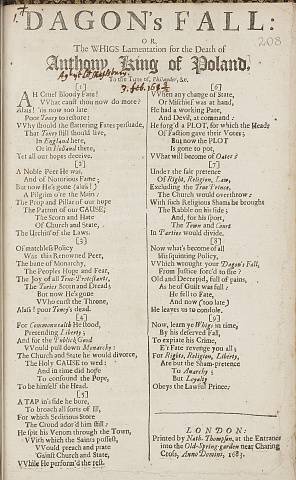 208
DAGON's FALL:
OR,
The WHIGS Lamentation for the Death of
Anthony King of Poland,
To the Tune of, Philander, &c.
3. feb. 1682
[1]
AH Cruel Bloody Fate!
VVhat canst thou now do more?
Alas! 'tis now too late
Poor Tony to restore:
VVhy should the flattering Fates persuade,
That Tony still should live,
In England here,
Or in Poland there,
Yet all our hopes deceive.
[2]
A Noble Peer He was,
And of Notorious Fame;
But now He's gone (alas!)
A Pilgrim o're the Main:
The Prop and Pillar of our hope
The Patron of our CAUSE;
The Scorn and Hate
Of Church and State,
The Urchin of the Laws.
[3]
Of matchless Policy
Was this Renowned Peer,
The bane of Monarchy,
The Peoples Hope and Fear,
The Joy of all True-Protestants,
The Tories Scorn and Dread;
But now He's gone
VVho curst the Throne,
Alas! poor Tony's dead.
[4]
For Commonwealth He stood,
Pretending Liberty;
And for the Publick Good
VVould pull down Monarchy:
The Church and State he would divorce,
The Holy CAUSE to wed:
And in time did hope
To confound the Pope,
To be himself the Head.
[5]
A TAP in's side he bore,
To broach all sorts of Ill,
For which Seditious Store
The Croud ador'd him still:
He spit his Venom through the Town,
VVith which the Saints possest,
VVould preach and prate
'Gainst Church and State,
VVhile He perform'd the rest.
[6]
VVhen any change of State,
Or Mischief was at hand,
He had a working Pate,
And Devil at command:
He forg'd a PLOT, for which the Heads
Of Faction gave their Votes;
But now the PLOT
Is gone to pot,
VVhat will become of Oates?
[7]
Under the fair pretence
Of Right, Religion, Law,
Excluding the True Prince,
The Church would overthrow:
With such Religious Shams he brought
The Rabble on his side;
And, for his sport,
The Town and Court
In Parties would divide.
[8]
Now what's become of all
His squinting Policy,
VVhich wrought your Dagon's Fall,
From Justice forc'd to flie?
Old and Decrepid, full of pains,
As he of Guilt was full:
He fell to Fate,
And now (too late)
He leaves us to condole.
[9]
Now, learn ye Whigs in time,
By his deserved Fall,
To expiate his Crime,
E're Fate revenge you all;
For Rights, Religion, Liberty,
Are but the Sham-pretence
To Anarchy;
But Loyalty
Obeys the Lawful Prince.
LONDON:
Printed by Nath. Thompson, at the Entrance
into the Old-Spring-garden near Charing
Cross, Anno Domini, 1683.